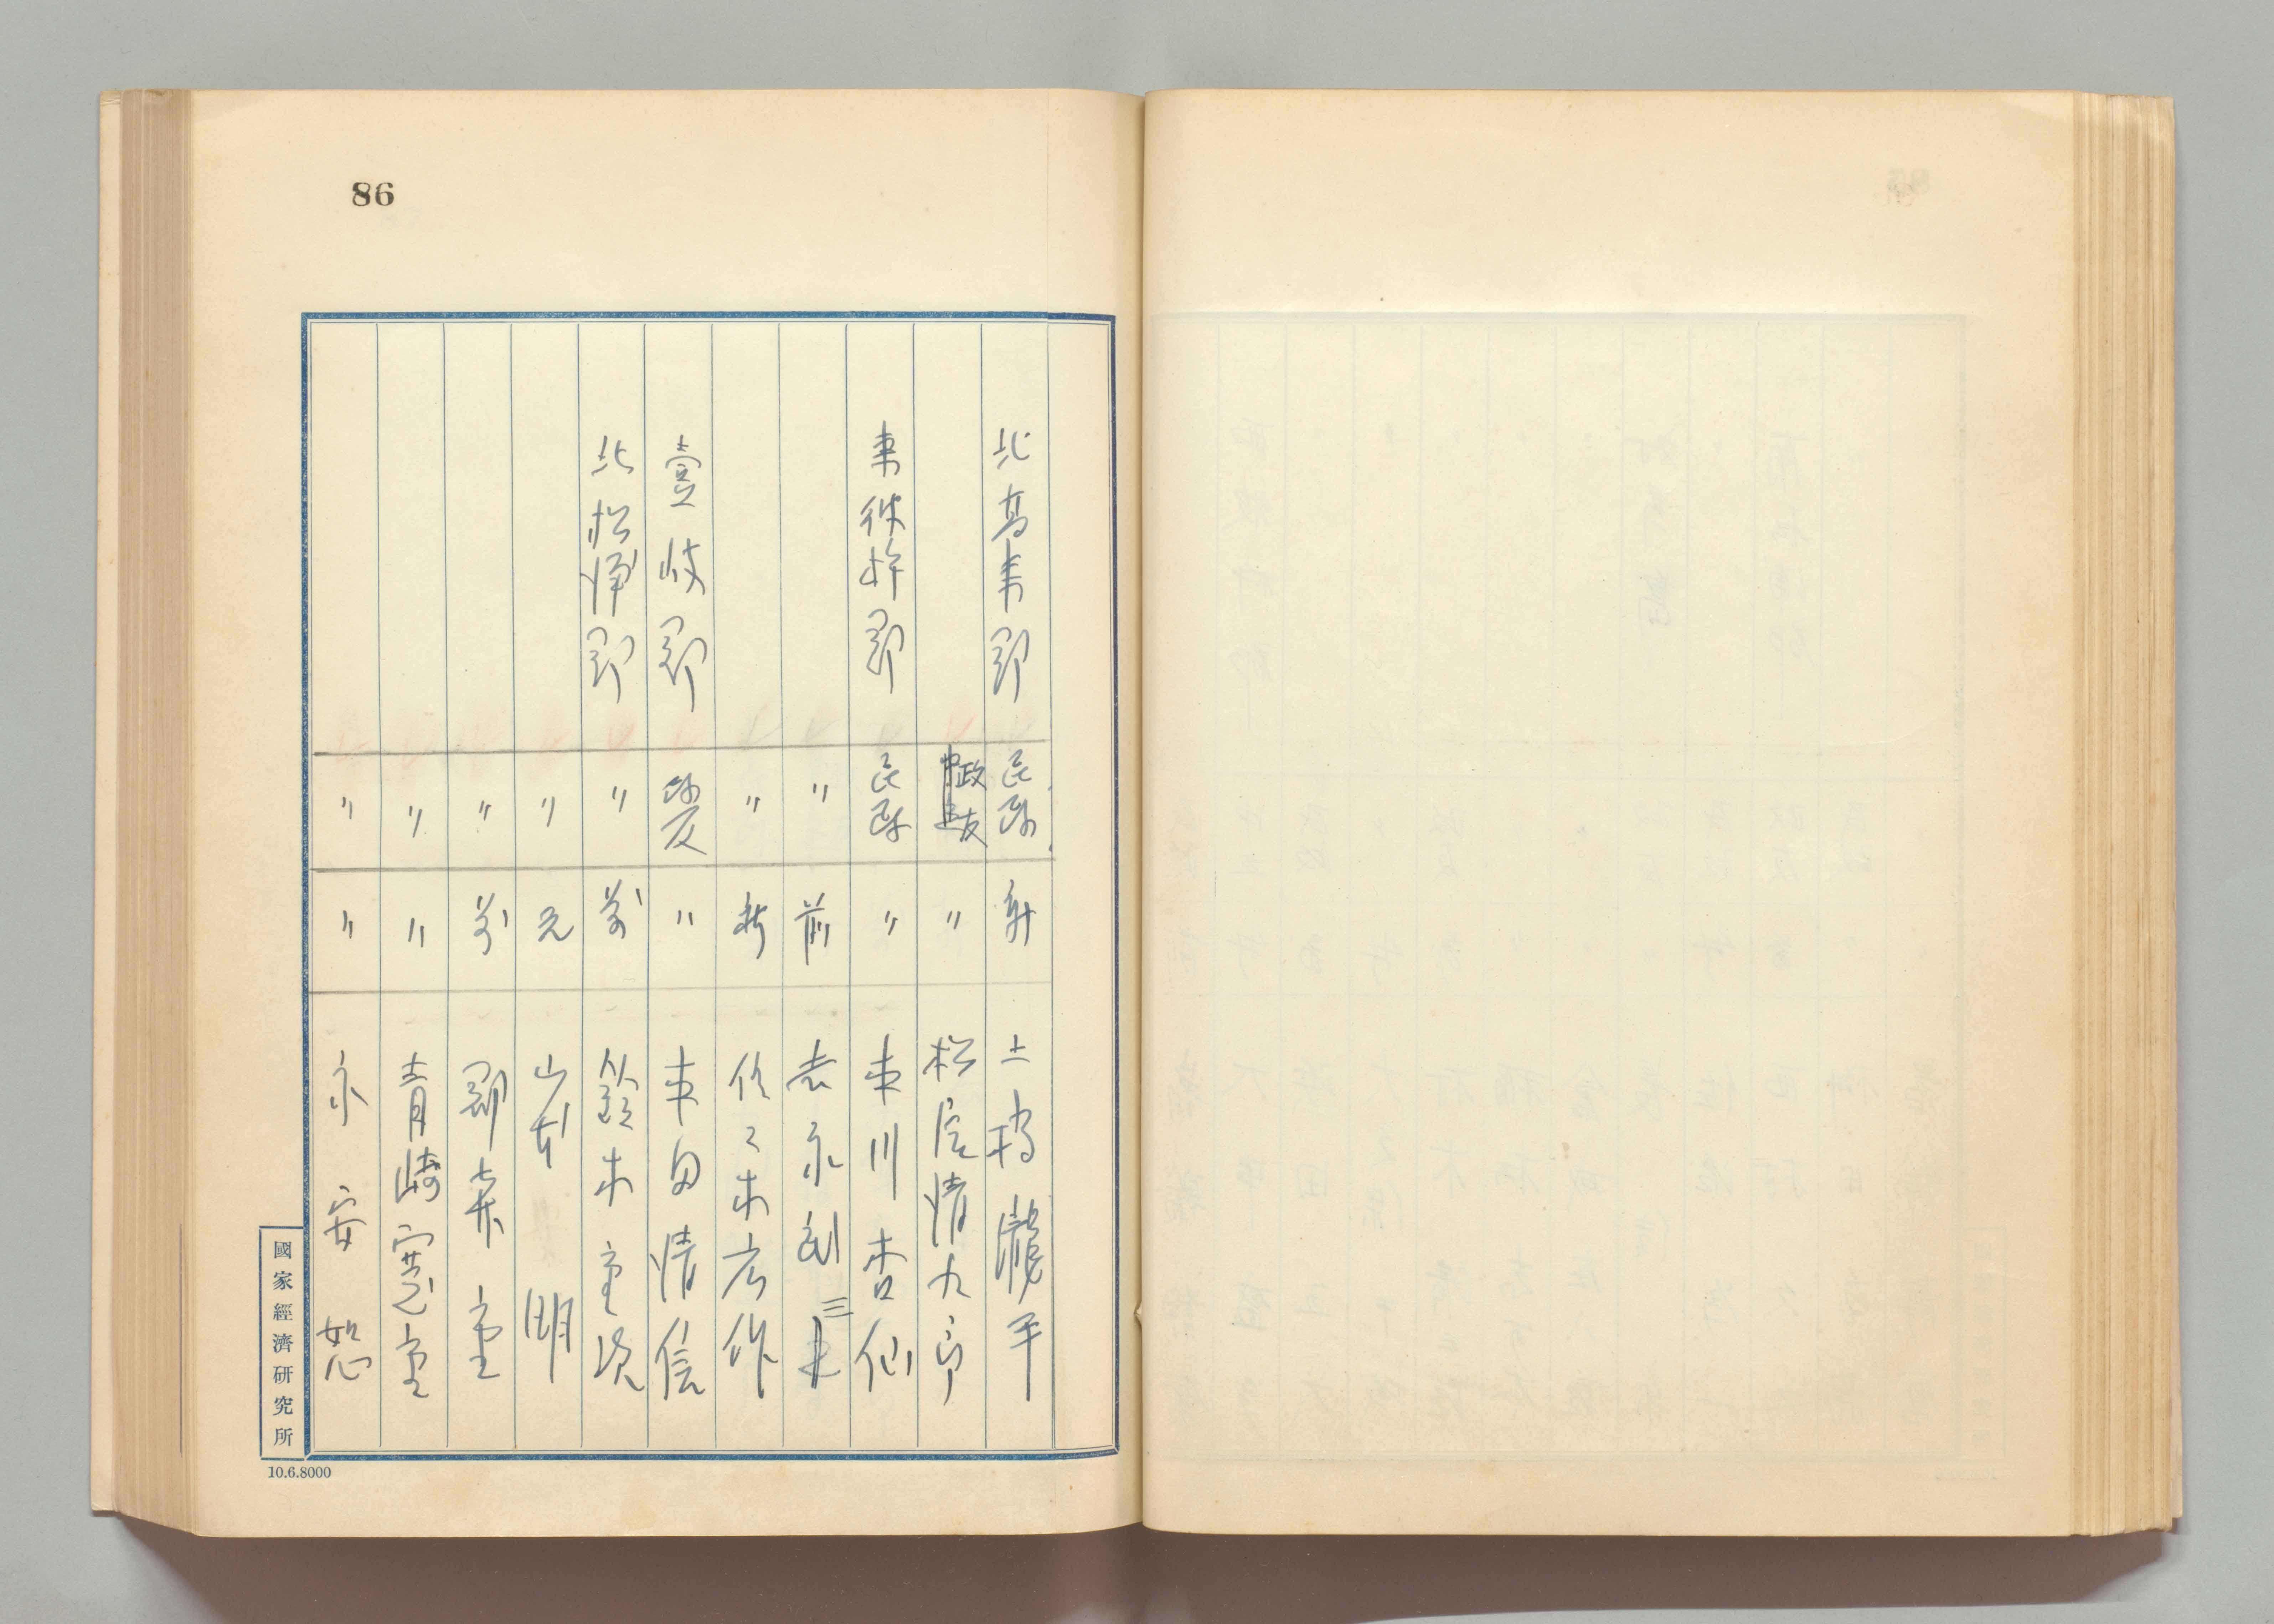 86
北高来郡 民政 新 土橋瀧平
政友 〃 松尾清九郎
東彼杵郡 民政 〃 東川杏仙
〃 前 志永 三
〃 新 佐々木 作
壹岐郡 政友 〃 末田清信
北松浦郡 〃 前 鈴木重次
〃 元 山本 明
〃 前
〃 〃 青崎寛重
〃 〃 永安 恕
國家經濟研究所
10.6.8000